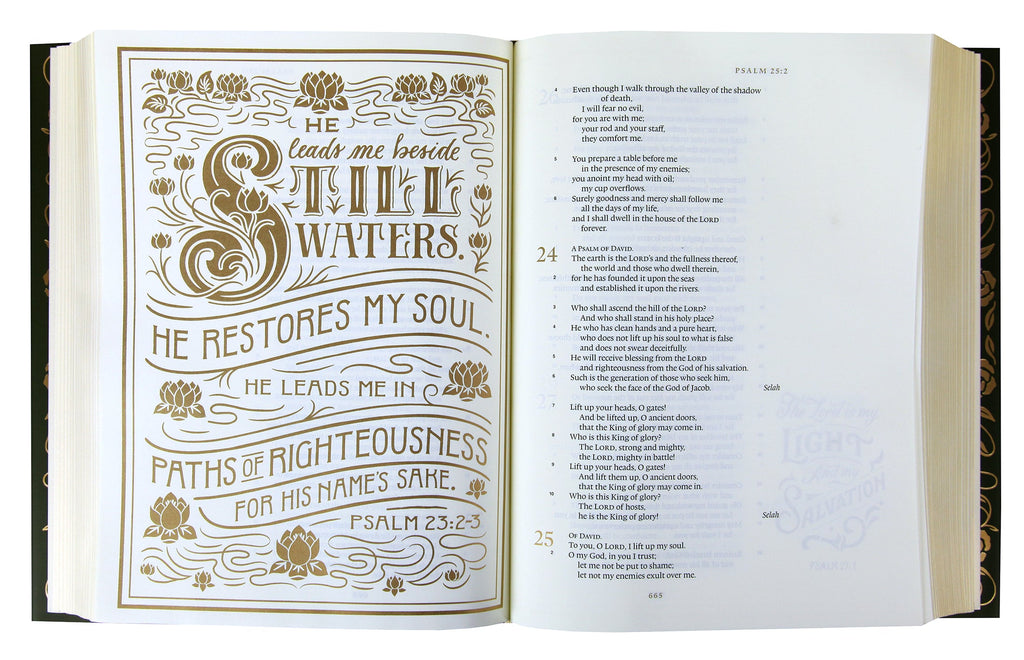 HE
leads me beside
STILL
WATERS.
HE RESTORES MY SOUL.
HE LEADS ME IN
PATHS OF RIGHTEOUSNESS
FOR HIS NAME'S SAKE.
PSALM 23:2-3
PSALM 25:2
4 Even though I walk through the valley of the shadow
of death,
I will fear no evil,
for you are with me;
your rod and your staff,
they comfort me.
5 You prepare a table before me
in the presence of my enemies;
you anoint my head with oil;
my cup overflows.
6 Surely goodness and mercy shall follow me
all the days of my life,
and I shall dwell in the house of the LORD
forever.
A PSALM OF DAVID.
24 The earth is the LORD's and the fullness thereof,
the world and those who dwell therein,
2 for he has founded it upon the seas
and established it upon the rivers.
3 Who shall ascend the hill of the LORD?
And who shall stand in his holy place?
4 He who has clean hands and a pure heart,
who does not lift up his soul to what is false
and does not swear deceitfully.
5 He will receive blessing from the LORD
and righteousness from the God of his salvation.
6 Such is the generation of those who seek him,
who seek the face of the God of Jacob. Selah
7 Lift up your heads, O gates!
And be lifted up, O ancient doors,
that the King of glory may come in.
8 Who is this King of glory?
The LORD, strong and mighty,
the LORD, mighty in battle!
9 Lift up your heads, O gates!
And lift them up, O ancient doors,
that the King of glory may come in.
10 Who is this King of glory?
The LORD of hosts,
he is the King of glory! Selah
OF DAVID.
25 To you, O LORD, I lift up my soul.
2 O my God, in you I trust;
let me not be put to shame;
let not my enemies exult over me.
665
The Lord is my
LIGHT
AND MY
SALVATION
PSALM 27:1